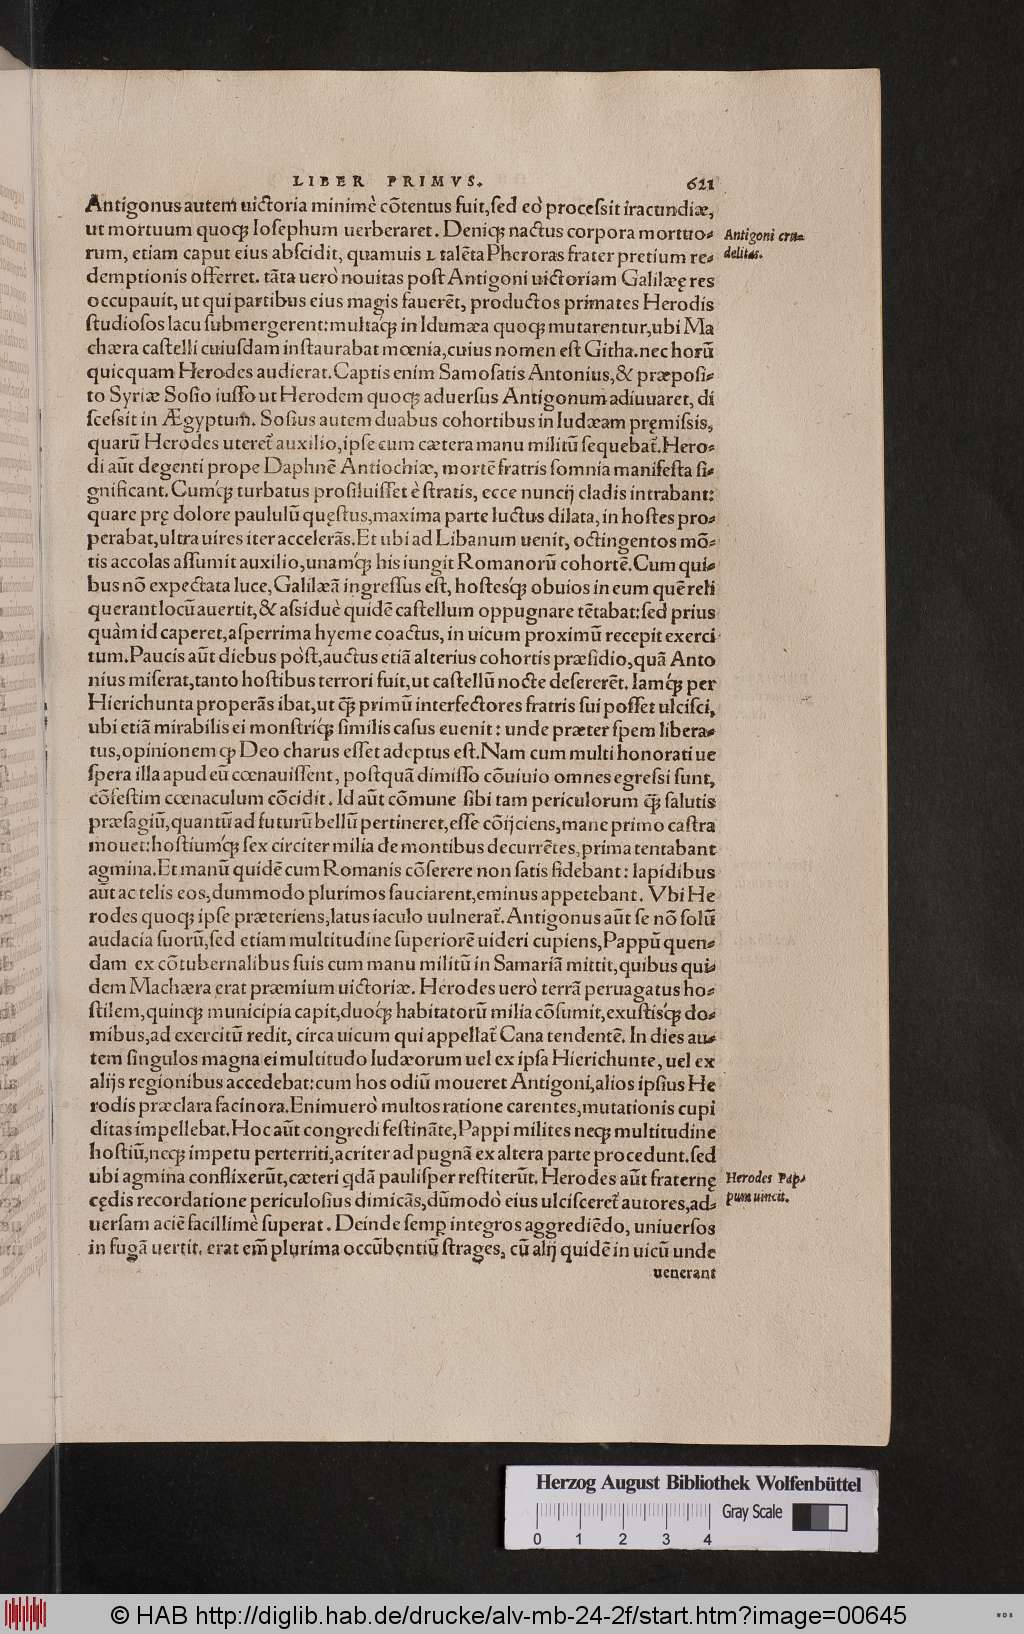 LIBER PRIMVS. 621
Antigonus autem uictoria minimè cōtentus fuit, sed eò procefsit iracundiæ,
ut mortuum quoq; Iosephum uerberaret. Deniq; nactus corpora mortuo-
rum, etiam caput eius abscidit, quamuis L talēta Pheroras frater pretium re-
demptionis offerret. tāta uerò nouitas post Antigoni uictoriam Galilææ res
occupauit, ut qui partibus eius magis fauerēt, productos primates Herodis
studiosos lacu submergerent: multaq́; in Idumæa quoq; mutarentur, ubi Ma
chæra castelli cuiusdam instaurabat mœnia, cuius nomen est Githa. nec horū
quicquam Herodes audierat. Captis enim Samosatis Antonius, & præposi-
to Syriæ Sosio iusso ut Herodem quoq; aduersus Antigonum adiuuaret, di
scefsit in Ægyptum. Sosius autem duabus cohortibus in Iudæam pręmissis,
quarū Herodes uteret̃ auxilio, ipse cum cætera manu militū sequebat̃. Hero-
di aūt degenti prope Daphnē Antiochiæ, mortē fratris somnia manifesta si-
gnificant. Cumq́; turbatus prosiluisset è stratis, ecce nuncij cladis intrabant:
quare prę dolore paululū quęstus, maxima parte luctus dilata, in hostes pro-
perabat, ultra uires iter accelerās. Et ubi ad Libanum uenit, octingentos mō-
tis accolas assumit auxilio, unamq́; his iungit Romanorū cohortē. Cum qui-
bus nō expectata luce, Galilæā ingressus est, hostesq́; obuios in eum quē reli
querant locū auertit, & assiduè quidē castellum oppugnare tētabat: sed prius
quàm id caperet, asperrima hyeme coactus, in uicum proximū recepit exerci
tum. Paucis aūt diebus pòst, auctus etiā alterius cohortis præsidio, quā Anto
nius miserat, tanto hostibus terrori fuit, ut castellū nocte desererēt. Iamq́; per
Hierichunta properās ibat, ut q̄; primū interfectores fratris sui posset ulcisci,
ubi etiā mirabilis ei monstriq́; similis casus euenit: unde præter spem libera-
tus, opinionem ꝙ Deo charus esset adeptus est. Nam cum multi honorati ue
spera illa apud eū cœnauissent, postquā dimisso cōuiuio omnes egressi sunt,
cōfestim cœnaculum cōcidit. Id aūt cōmune sibi tam periculorum q̄; salutis
præsagiū, quantū ad futurū bellū pertineret, esse cōijciens, mane primo castra
mouet: hostiumq́; sex circiter milia de montibus decurrētes, prima tentabant
agmina. Et manū quidē cum Romanis cōserere non satis fidebant: lapidibus
aūt ac telis eos, dummodo plurimos sauciarent, eminus appetebant. Vbi He
rodes quoq; ipse præteriens, latus iaculo uulnerat̃. Antigonus aūt se nō solū
audacia suorū, sed etiam multitudine superiorē uideri cupiens, Pappū quen-
dam ex cōtubernalibus suis cum manu militū in Samariā mittit, quibus qui-
dem Machæra erat præmium uictoriæ. Herodes uerò terrā peruagatus ho-
stilem, quinq; municipia capit, duoq́; habitatorū milia cōsumit, exustisq́; do-
mibus, ad exercitū redit, circa uicum qui appellat̃ Cana tendentē. In dies au-
tem singulos magna ei multitudo Iudæorum uel ex ipsa Hierichunte, uel ex
alijs regionibus accedebat: cum hos odiū moueret Antigoni, alios ipsius He
rodis præclara facinora. Enimuerò multos ratione carentes, mutationis cupi
ditas impellebat. Hoc aūt congredi festināte, Pappi milites neq; multitudine
hostiū, neq; impetu perterriti, acriter ad pugnā ex altera parte procedunt. sed
ubi agmina conflixerūt, cæteri qdā paulisper restiterūt. Herodes aūt fraternę
cędis recordatione periculosius dimicās, dūmodò eius ulcisceret̃ autores, ad-
uersam aciē facillimè superat. Deinde semꝑ integros aggrediēdo, uniuersos
in fugā uertit. erat em̃ plurima occūbentiū strages, cū alij quidē in uicū unde
uenerant
Antigoni cru-
delitas.
Herodes Pap-
pum uincit.
Herzog August Bibliothek Wolfenbüttel
Gray Scale
0 1 2 3 4
© HAB http://diglib.hab.de/drucke/alv-mb-24-2f/start.htm?image=00645